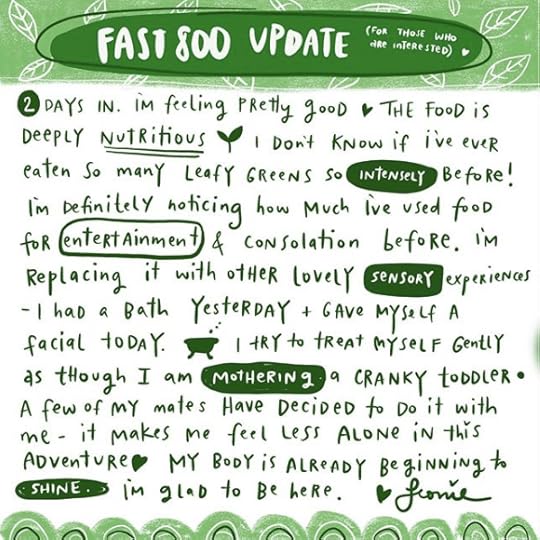 FAST 800 UPDATE (FOR THOSE WHO
are interested) ♥
2 DAYS IN. i'm feeling PRetty good ♥ THE FOOD iS
DeePLY NutRitious I DON't KNOW if i've eveR
eaten So manY LeaFY GReens so INTENSELY BeFoRe!
I'm Definitely noticing how Much I've used food
foR entertainment & CONSOLation beFoRe. i'm
Replacing it with otHeR Lovely SENSORY experiences
- I haD a BatH YesteRDAY + GAve MYSelf A
facial toDAY. I tRY to tReat MYSelf Gently
as tHough I am MOTHERING a CRANKY toDDLeR •
A few of MY mates Have DeciDeD to Do it with
me - it makes me feel Less ALONe in tHis
ADventuRe ♥ MY BoDY is ALReADY Beginning to
SHINE. i'm gLaD to Be here. ♥ Leonie